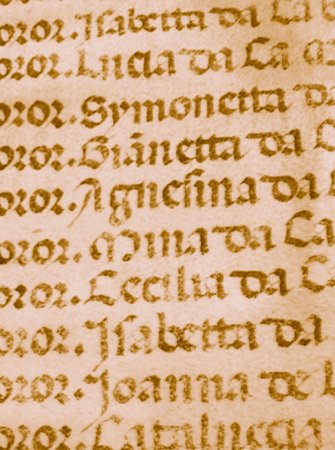 oror. Isabetta da Ca
oror. Lucia da Ca
oror. Symonetta da
oror. Giãnetta da
oror. Agnesina da
oror. Mina da Ca
oror. Cecilia da C
oror. Isabetta da
oror. Joanna de
oror. Cataluccia